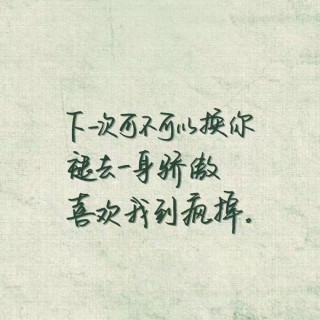 下一次可不可以换你
褪去一身骄傲
喜欢我到疯掉。